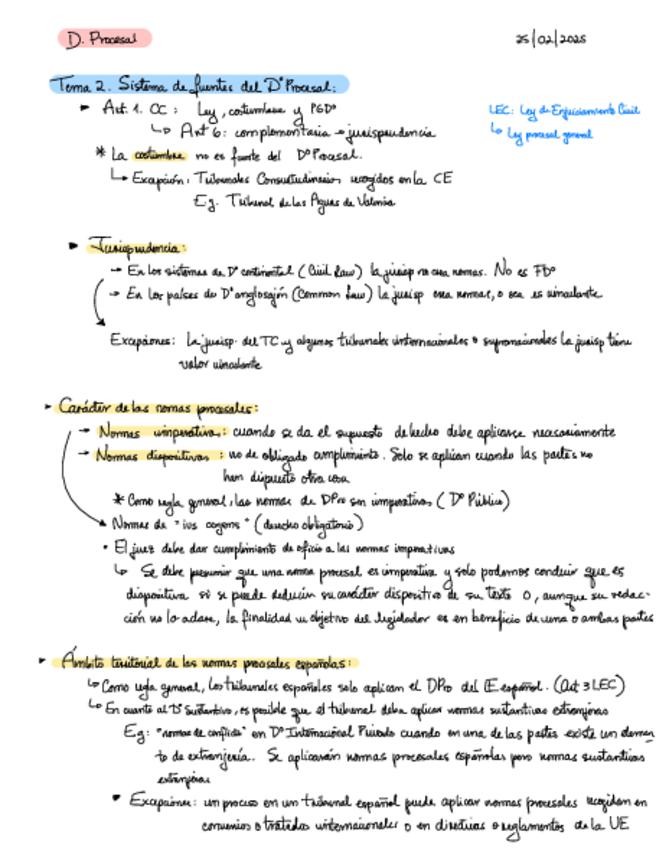 D. Procesal
25/02/2025
Tema 2. Sistema de fuentes del Dº Procesal:
► Art. 1. CC: Ley, costumbre y PGDº
↳ Art 6: complementaria → jurisprudencia
LEC: Ley de Enjuiciamiento Civil
↳ Ley procesal general
* La costumbre no es fuente del Dº Procesal.
↳ Excepción: Tribunales Consuetudinarios recogidos en la CE
E.g. Tribunal de las Aguas de Valencia
► Jurisprudencia:
→ En los sistemas de Dº continental (Civil Law) la jurisp no crea normas. No es FDº
→ En los países de Dº anglosajón (Common Law) la jurisp crea normas, o sea es vinculante.
Excepciones: La jurisp. del TC y algunos tribunales internacionales o supranacionales la jurisp tiene
valor vinculante
► Carácter de las normas procesales:
→ Normas imperativas: cuando se da el supuesto de hecho debe aplicarse necesariamente
→ Normas dispositivas: no de obligado cumplimiento. Solo se aplican cuando las partes no
han dispuesto otra cosa
* Como regla general, las normas de DPro son imperativas (Dº Público)
Normas de "ius cogens" (derecho obligatorio)
• El juez debe dar cumplimiento de oficio a las normas imperativas
↳ Se debe presumir que una norma procesal es imperativa y solo podemos concluir que es
dispositiva si se puede deducir su carácter dispositivo de su texto o, aunque su redac-
ción no lo aclare, la finalidad u objetivo del legislador es en beneficio de una o ambas partes
► Ámbito territorial de las normas procesales españolas:
↳ Como regla general, los tribunales españoles solo aplican el DPro del E español. (Art 3 LEC)
↳ En cuanto al Dº Sustantivo, es posible que el tribunal deba aplicar normas sustantivas extranjeras
Eg: "normas de conflicto" en Dº Internacional Privado cuando en una de las partes existe un elemen
to de extranjería. Se aplicarán normas procesales españolas pero normas sustantivas
extranjeras
• Excepciones: un proceso en un tribunal español puede aplicar normas procesales recogidas en
convenios o tratados internacionales o en directivas o reglamentos de la UE